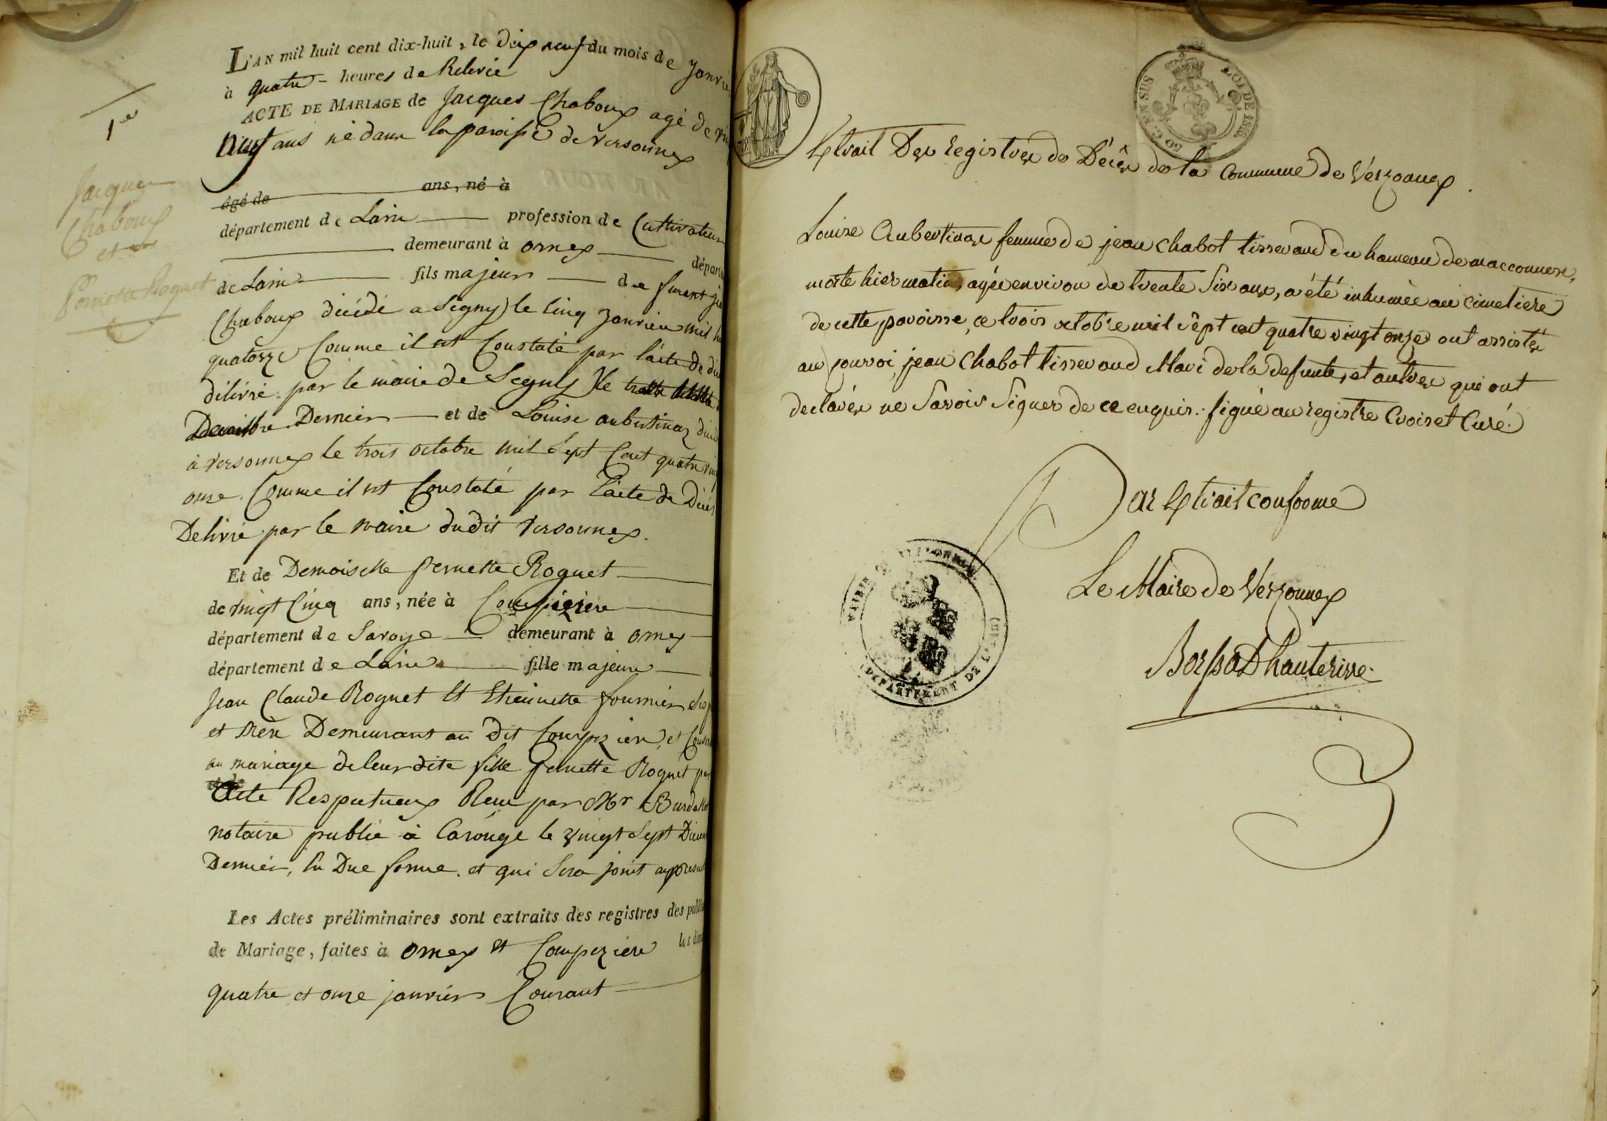 1er
Jacques
Chaboux
et
Pernette Roguet
L'AN mil huit cent dix-huit, le dix neuf du mois de Janvie
à quatre heures de Relevée
ACTE DE MARIAGE de Jacques Chaboux agé de
neuf ans né dans la paroisse de versonnex
âgé de ans, né à
département de Lain profession de Cultivateur
demeurant à ornex dépar
de Lain fils majeur de furent
Chaboux décédé a Segny le cinq Janvier mil
quatorze Comme il est Constaté par l'acte de
délivré par le maire de Segny le
Dernier et de Louise aubertinaz
à versonnex le trois octobre mil sept Cent quatre
onze. Comme il est Constaté par l'acte de Décès
Delivré par le maire dudit versonnex.
Et de Demoiselle pernette Roguet
de vingt Cinq ans, née à Compézière
département de Savoye demeurant à ornex
département de Lain fille majeure
Jean Claude Roguet Et Etiennette fournier
et mère Demeurant au dit Compezière, et
au mariage de leur dite fille pernette Roguet par
acte Respectueux Reçu par Mr
notaire public à Carouge le vingt Sept
Dernier, En Due forme. et qui Sera joint
Les Actes préliminaires sont extraits des registres des publi
de Mariage, faites à ornex et Compezière les dim
quatre et onze janvier Courant
Extrait Des registres de Décès de la Commune de Verzonnex.
Louise Aubertinaz femme de jean Chabot tisserand du hameau de maconnex,
morte hier matin, agée environ de trente Six ans, a été inhumée au cimetière
de cette paroisse, ce trois octobre mil sept cent quatre vingt onze ont assistés
au convoi, jean Chabot tisserand Mari de la defunte, et autres qui ont
declarés ne Savoir Signer de ce enquis. signé au registre Croiset Curé.
Par Extrait conforme
Le Maire de Verzonnex
DÉPARTEMENT DE L'AIN